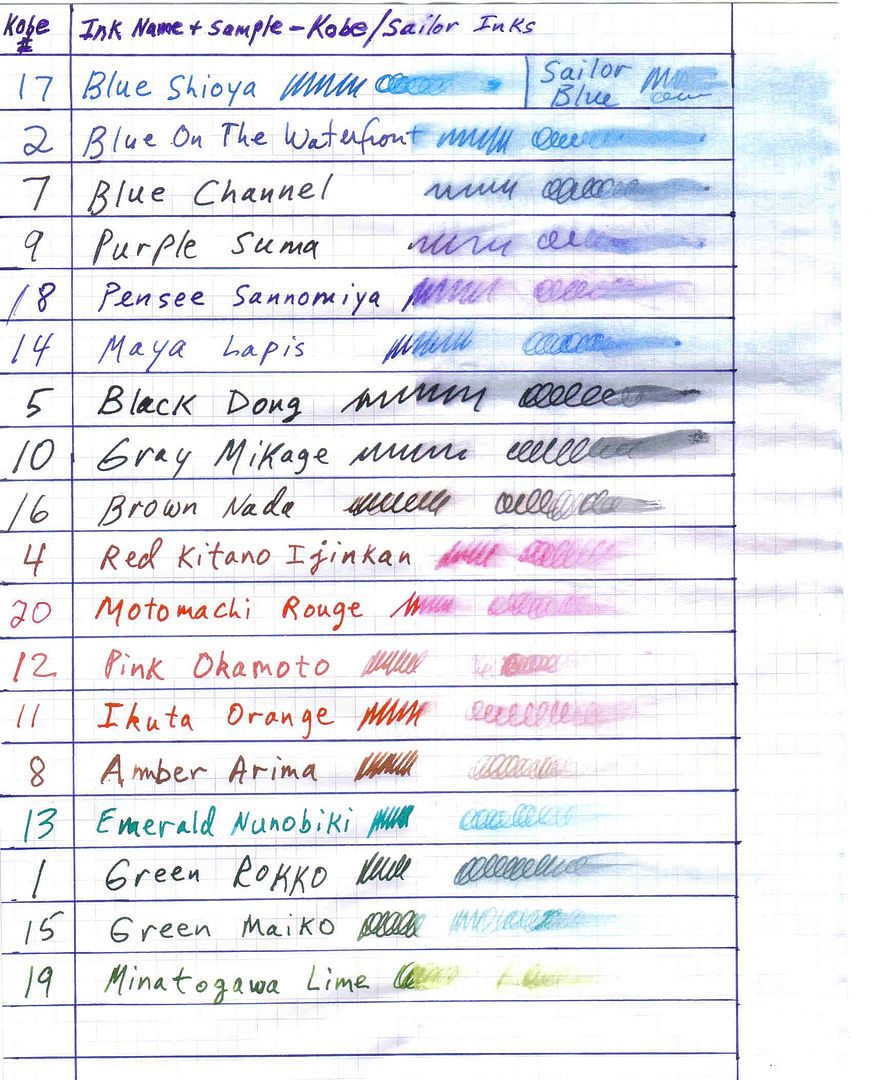 Kobe # Ink Name + Sample - Kobe/Sailor Inks
17 Blue Shioya Sailor Blue
2 Blue On The Waterfront
7 Blue Channel
9 Purple Suma
18 Pensee Sannomiya
14 Maya Lapis
5 Black Dong
10 Gray Mikage
16 Brown Nada
4 Red Kitano Ijinkan
20 Motomachi Rouge
12 Pink Okamoto
11 Ikuta Orange
8 Amber Arima
13 Emerald Nunobiki
1 Green Rokko
15 Green Maiko
19 Minatogawa Lime